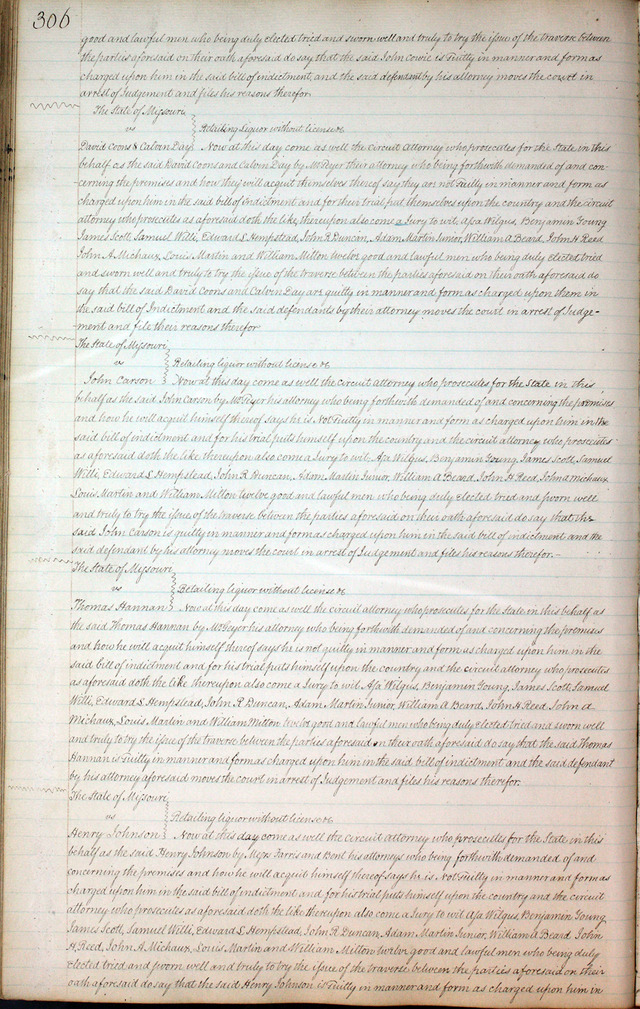 306
good and lawful men who being duly elected tried and sworn well and truly to try the issue of the traverse between
the parties aforesaid on their oath aforesaid do say that the said John Cowie is Guilty in manner and form as
charged upon him in the said bill of indictment, and the said defendant by his attorney moves the court in
arrest of Judgement and files his reasons therefor
The State of Missouri
vs Retailing Liquor without license &c
David Coons & Calvan Day Now at this day come as well the circuit attorney who prosecutes for the State in this
behalf as the said David Coons and Calvin Day by Mr Geyer their attorney who being forthwith demanded of and con-
cerning the premises and how they will acquit themselves thereof say they are not Guilty in manner and form as
charged upon him in the said bill of indictment and for their trial put themselves upon the country and the circuit
attorney who prosecutes as aforesaid doth the like thereupon also come a Jury to wit, Asa Wilgus, Benjamin Young
James Scott, Samuel Willi, Edward S Hempstead, John R Duncan, Adam Martin Junior, William A Beard, John H Reed
John A Michaux, Louis Martin and William Milton twelve good and lawful men who being duly elected tried
and sworn well and truly to try the issue of the traverse between the parties aforesaid on their oath aforesaid do
say that the said David Coons and Calvin Day are guilty in manner and form as charged upon them in
the said bill of Indictment and the said defendants by their attorney moves the court in arrest of Judge-
ment and file their reasons therefor
The State of Missouri
vs Retailing liquor without license &c
John Carson Now at this day come as well the circuit attorney who prosecutes for the State in this
behalf as the said John Carson by Mr Geyer his attorney who being forthwith demanded of and concerning the premises
and how he will acquit himself thereof says he is Not Guilty in manner and form as charged upon him in the
said bill of indictment and for his trial puts himself upon the country and the circuit attorney who prosecutes
as aforesaid doth the like thereupon also come a Jury to wit, Asa Wilgus, Benjamin Young, James Scott, Samuel
Willi, Edward S Hempstead, John R Duncan, Adam Martin Junior, William A Beard, John H Reed, John A Michaux
Louis Martin and William Milton twelve good and lawful men who being duly elected tried and sworn well
and truly to try the issue of the traverse between the parties aforesaid on their oath aforesaid do say that the
said John Carson is guilty in manner and form as charged upon him in the said bill of indictment and the
said defendant by his attorney moves the court in arrest of Judgement and files his reasons therefor.-
The State of Missouri
vs Retailing liquor without license &c
Thomas Hannan Now at this day come as well the circuit attorney who prosecutes for the state in this behalf as
the said Thomas Hannan by Mr Geyer his attorney who being forthwith demanded of and concerning the premises
and how he will acquit himself thereof says he is not guilty in manner and form as charged upon him in the
said bill of indictment and for his trial puts himself upon the country and the circuit attorney who prosecutes
as aforesaid doth the like thereupon also come a Jury to wit, Asa Wilgus, Benjamin Young, James Scott, Samuel
Willi, Edward S Hempstead, John R Duncan, Adam Martin Junior, William A Beard, John H Reed, John A
Michaux, Louis Martin and William Milton twelve good and lawful men who being duly elected tried and sworn well
and truly to try the issue of the traverse between the parties aforesaid on their oath aforesaid do say that the said Thomas
Hannan is Guilty in manner and form as charged upon him in the said bill of indictment and the said defendant
by his attorney aforesaid moves the court in arrest of Judgement and files his reasons therefor.
The State of Missouri
vs Retailing liquor without license &c
Henry Johnson Now at this day come as well the circuit attorney who prosecutes for the State in this
behalf as the said Henry Johnson by Messrs Farris and Bent his attorneys who being forthwith demanded of and
concerning the premises and how he will acquit himself thereof says he is Not Guilty in manner and form as
charged upon him in the said bill of indictment and for his trial puts himself upon the country and the circuit
attorney who prosecutes as aforesaid doth the like thereupon also come a Jury to wit Asa Wilgus, Benjamin Young,
James Scott, Samuel Willi, Edward S Hempstead, John R Duncan, Adam Martin Junior, William A Beard John
H Reed, John A Michaux, Louis Martin and William Milton twelve good and lawful men who being duly
elected tried and sworn well and truly to try the issue of the traverse between the parties aforesaid on their
oath aforesaid do say that the said Henry Johnson is Guilty in manner and form as charged upon him in